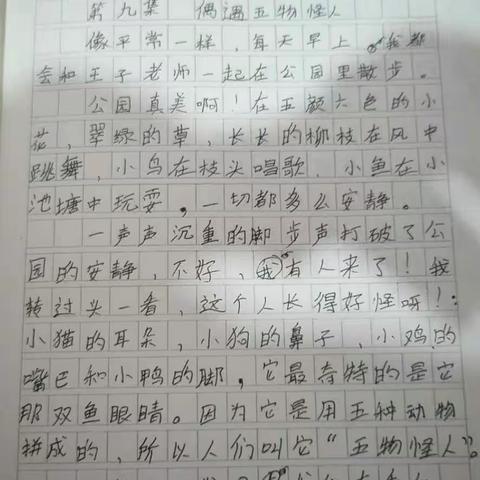 第九集 偶遇五物怪人
像平常一样，每天早上，我都
会和王子老师一起在公园里散步。
公园真美啊！在五颜六色的小
花，翠绿的草，长长的柳枝在风中
跳舞，小鸟在枝头唱歌，小鱼在小
池塘中玩耍，一切都多么安静。
一声声沉重的脚步声打破了公
园的安静，不好，有人来了！我
转过头一看，这个人长得好怪呀！：
小猫的耳朵，小狗的鼻子，小鸡的
嘴巴和小鸭的脚，它最奇特的是它
那双鱼眼睛。因为它是用五种动物
拼成的，所以人们叫它“五物怪人”。